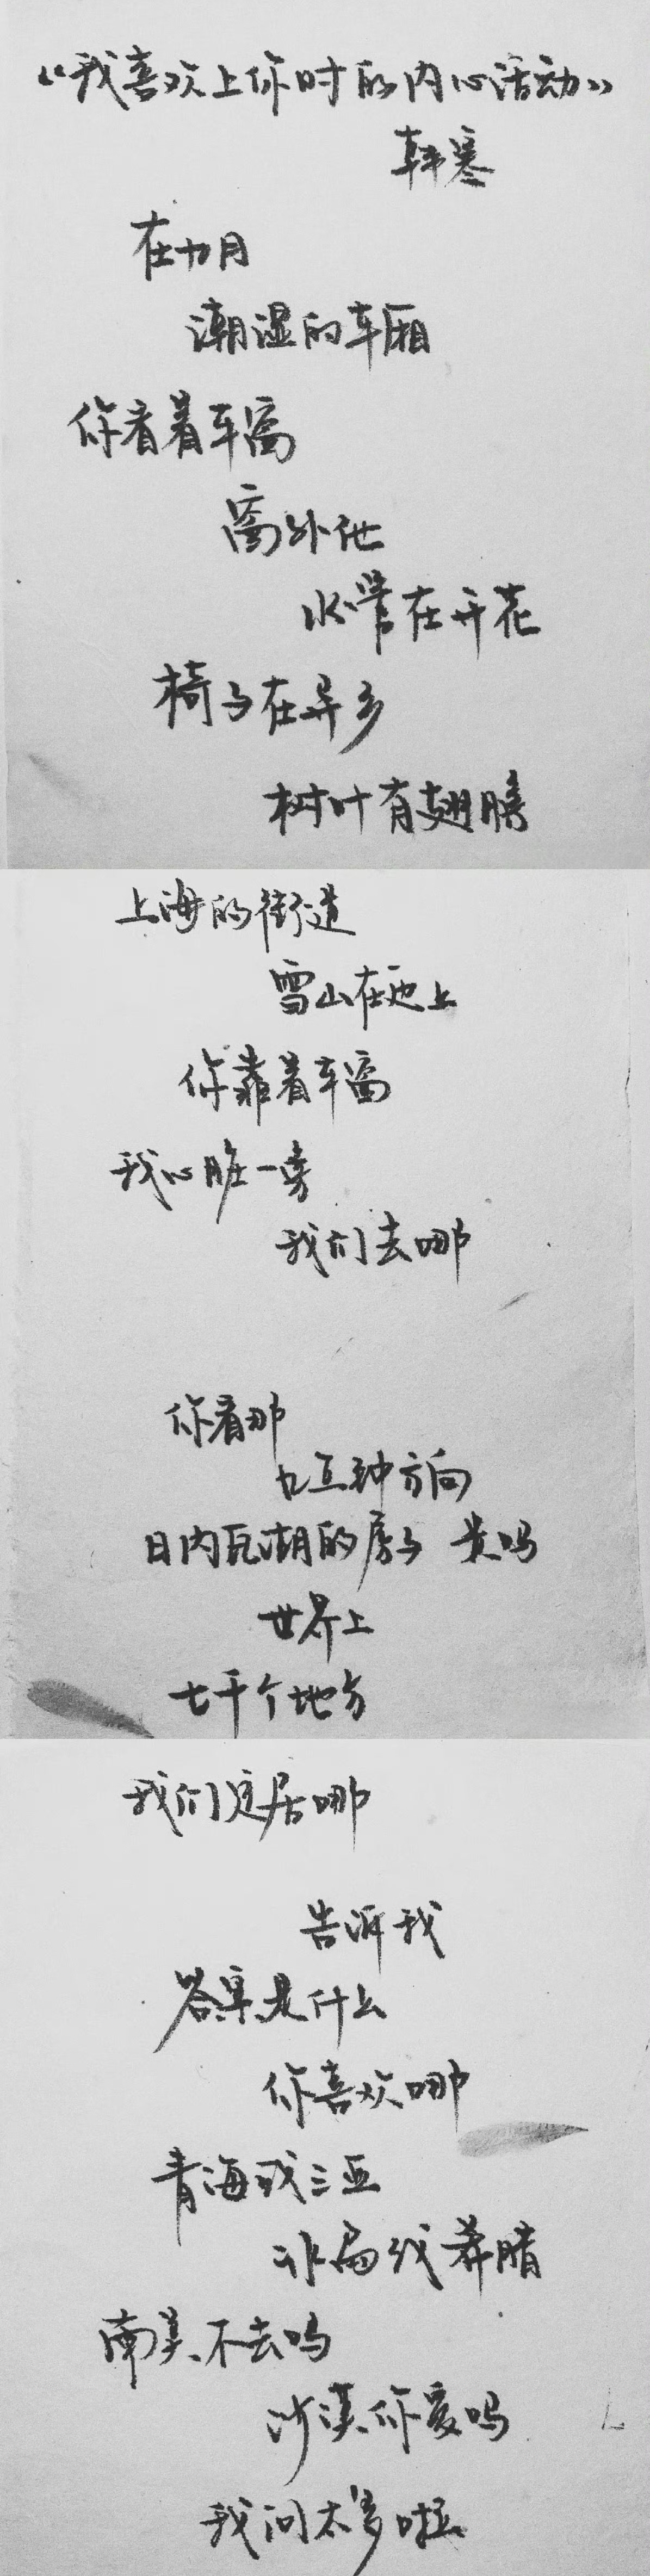 《我喜欢上你时的内心活动》
韩寒
在九月
潮湿的车厢
你看着车窗
窗外他
水管在开花
椅子在异乡
树叶有翅膀
上海的街道
雪山在边上
你靠着车窗
我心脏一旁
我们去哪
你看那
九五种方向
日内瓦湖的房子 贵吗
世界上
七千个地方
我们定居哪
告诉我
答案是什么
你喜欢哪
青海或三亚
冰岛或希腊
南美、不去吗
沙漠你爱吗
我问太多啦